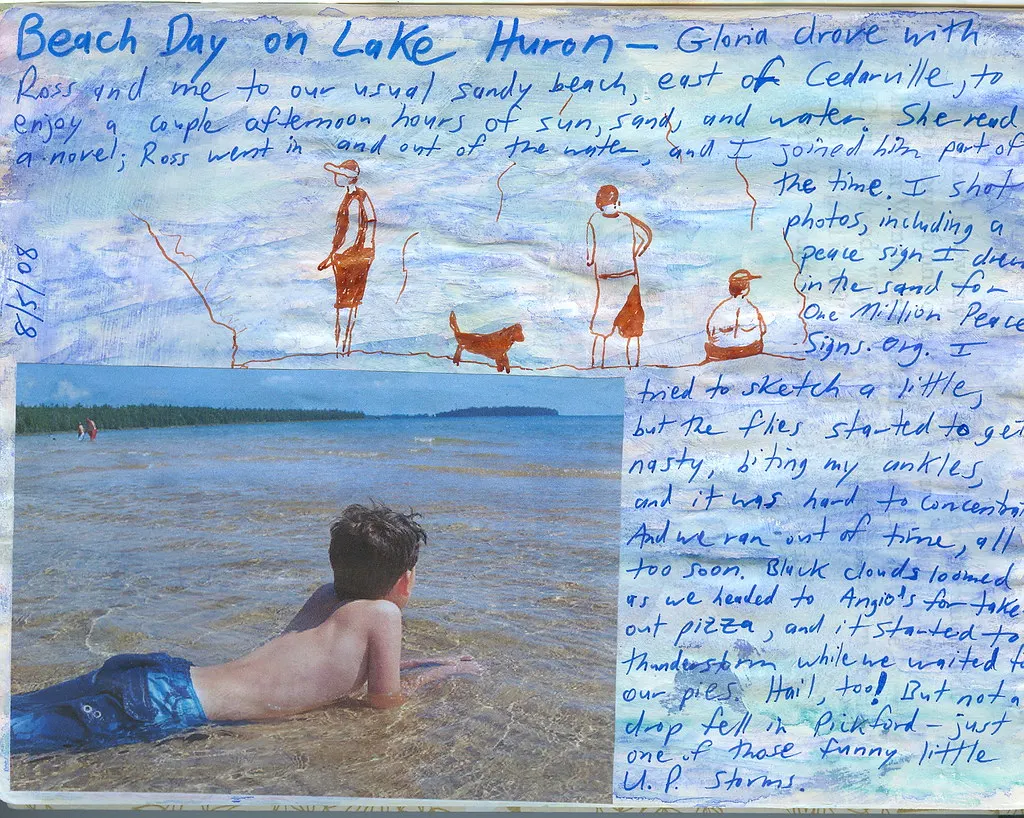 Beach Day on Lake Huron — Gloria drove with
Ross and me to our usual sandy beach, east of Cedarville, to
enjoy a couple afternoon hours of sun, sand, and water. She read
a novel; Ross went in and out of the water, and I joined him part of
the time. I shot
photos, including a
peace sign I drew
in the sand for
One Million Peace
Signs.Org. I
8/5/08
tried to sketch a little,
but the flies started to get
nasty, biting my ankles,
and it was hard to concentrat
And we ran out of time, all
too soon. Black clouds loomed
as we headed to Angio's for take
out pizza, and it started to
thunderstorm while we waited f
our pies. Hail, too! But not a
drop fell in Pickford – just
one of those funny little
U.P. storms.